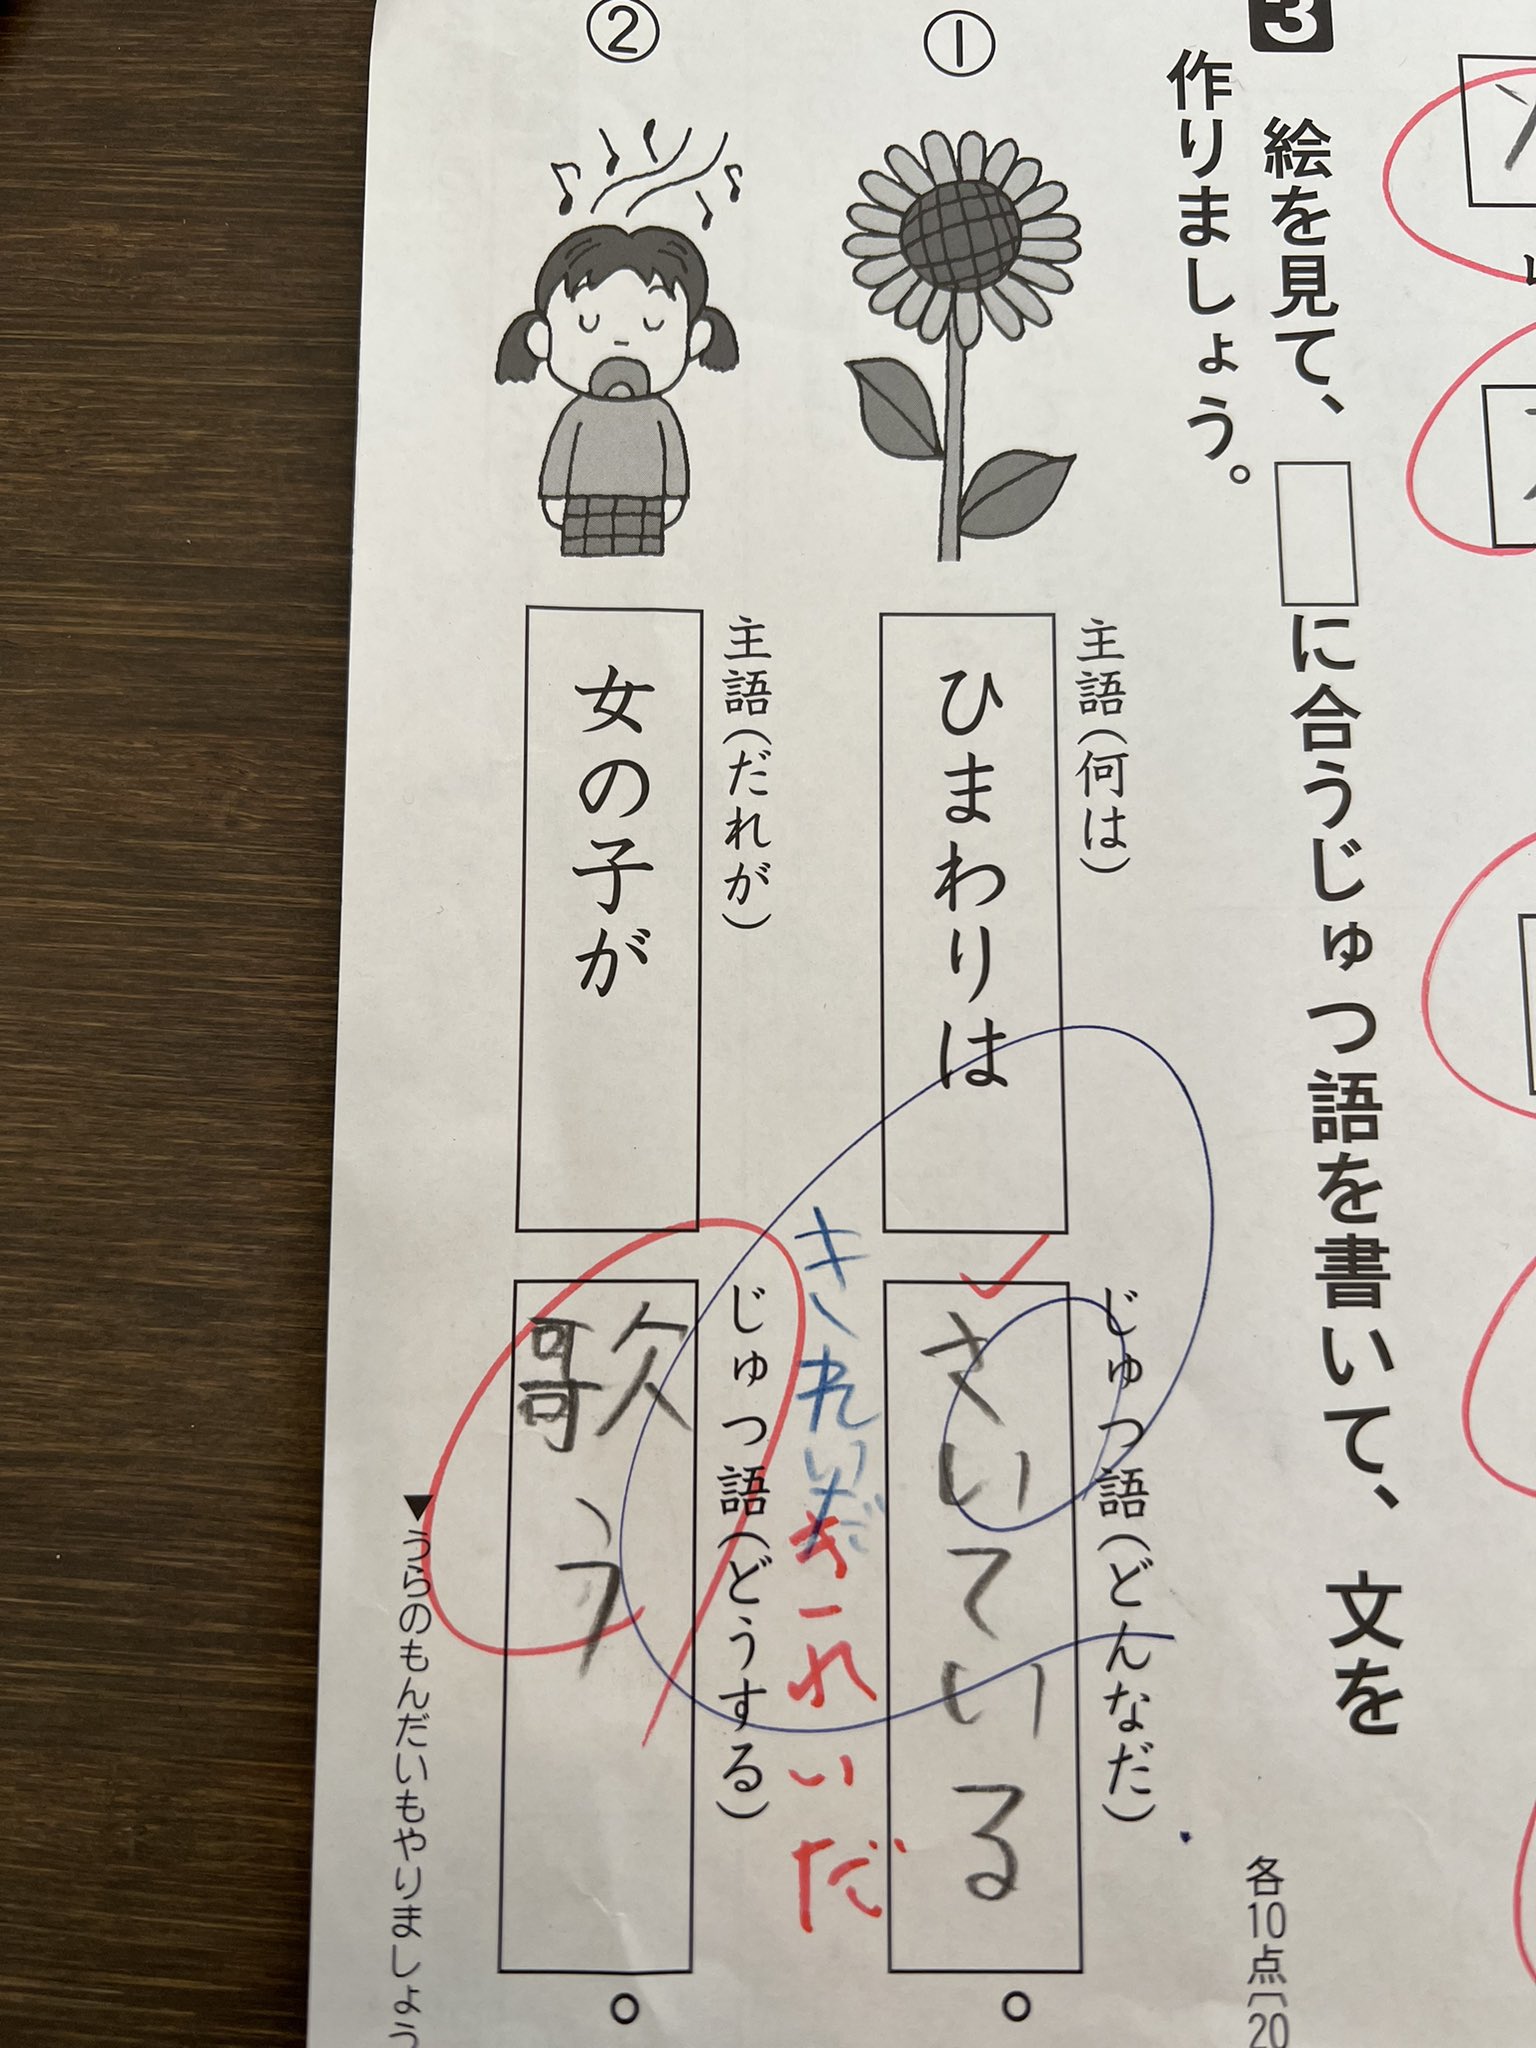 3 絵を見て、□に合うじゅつ語を書いて、文を
作りましょう。
各10点〔20
①
主語(何は)
ひまわりは
じゅつ語(どんなだ)
さいている
。
きれいだ
きれいだ
②
主語(だれが)
女の子が
じゅつ語(どうする)
歌う
。
▼うらのもんだいもやりましょう